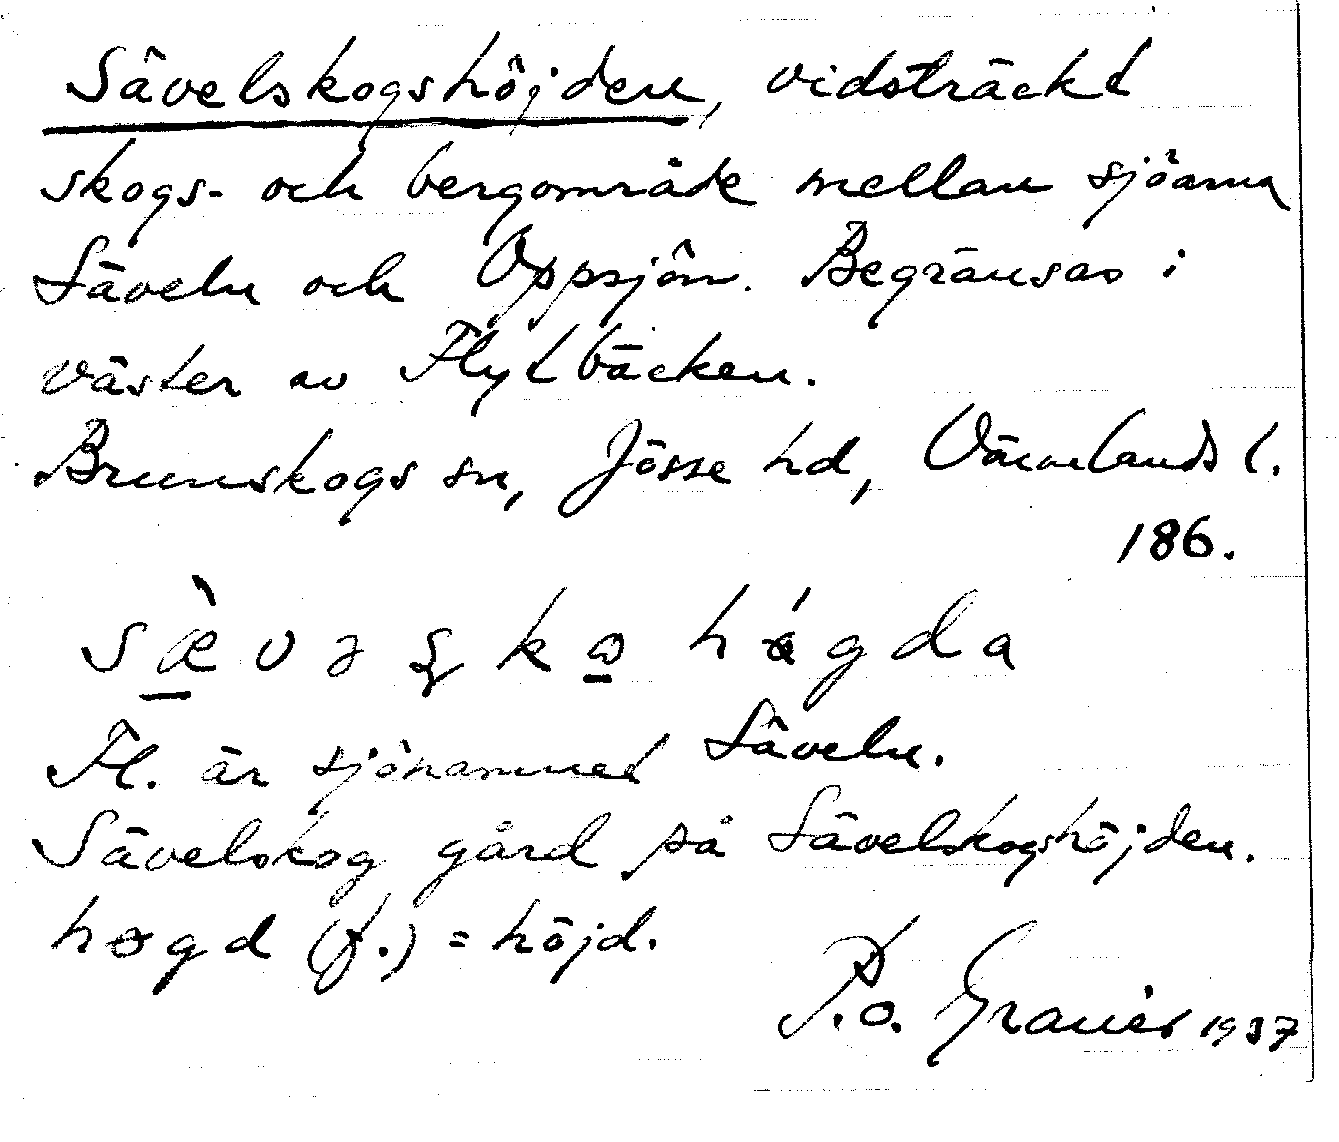 Sävelskogshöjden, vidsträckt
skogs- och bergområde mellan sjöarna
Säveln och Oppsjön. Begränsas i
väster av Flytbäcken.
Brunskogs sn, Jösse hd, Värmlands l.
186.
Fl. är sjönamnet Säveln.
Sävelskog gård på Sävelskogshöjden.
høgd (f.) = höjd.
P.O. Granér 1937